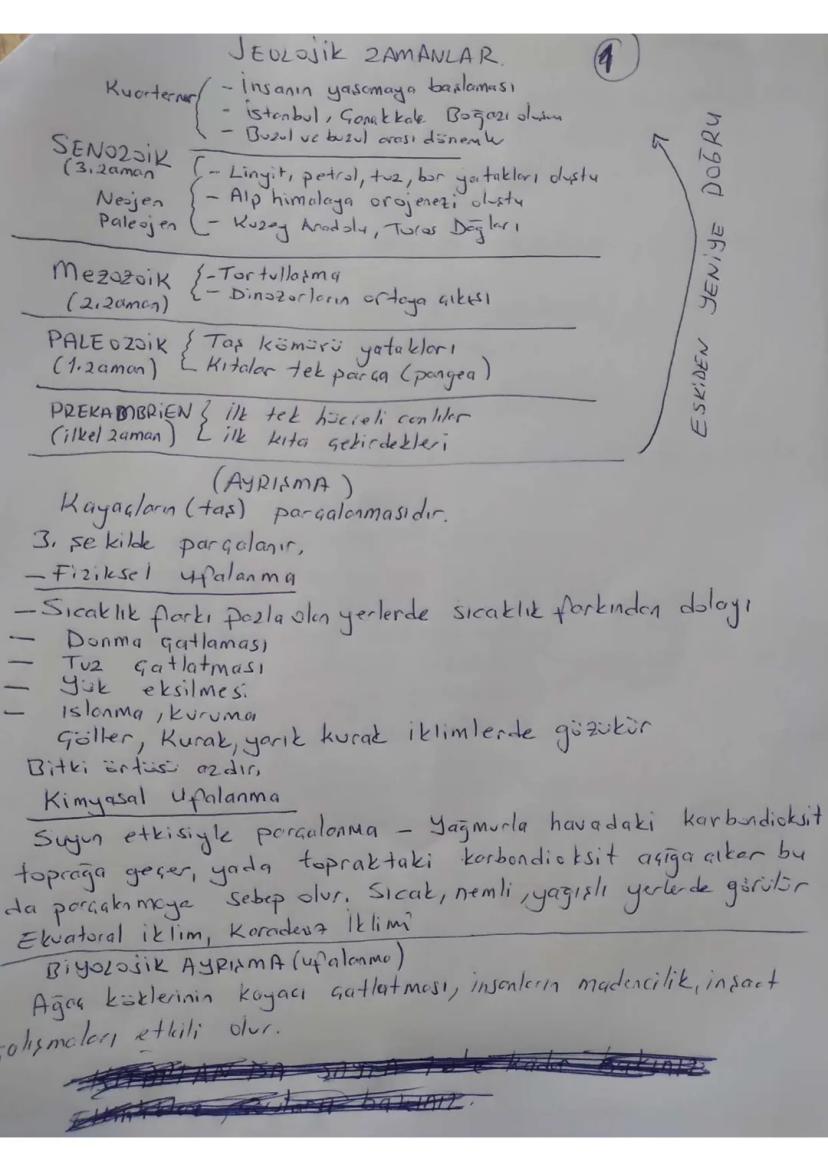 JEOLOJİK ZAMANLAR.
1
Kuarterner - İnsanın yaşamaya başlaması
- İstanbul, Çanakkale Boğazı oluşu
- Buzul ve buzul arası dönemle
SENOZOİK
(3. zaman
- Linyit, petrol, tuz, bor yatakları oluştu
Neojen - Alp himalaya orojenezi oluştu
Paleojen - Kuzey Anadolu, Toros Dağları
Mezozoik - Tortullaşma
(2. zaman) - Dinozorların ortaya çıkışı
PALEOZOİK Taş kömürü yatakları
(1. zaman) Kıtalar tek parça (pangea)
PREKAMBRİEN ilk tek hücreli canlılar
(ilkel zaman) ilk kıta çekirdekleri
ESKİDEN YENİYE DOĞRU
(AYRIŞMA)
Kayaçların (taş) parçalanmasıdır.
3. şekilde parçalanır,
- Fiziksel ufalanma
- Sıcaklık farkı fazla olan yerlerde sıcaklık farkından dolayı
- Donma çatlaması
- Tuz çatlatması
- Yük eksilmesi
- Islanma, kuruma
Çöller, Kurak, yarık kurak iklimlerde gözükür
Bitki örtüsü azdır,
Kimyasal Ufalanma
Suyun etkisiyle parçalanma - Yağmurla havadaki karbondioksit
toprağa geçer, yada topraktaki karbondioksit açığa çıkar bu
da parçalanmaya sebep olur. Sıcak, nemli, yağışlı yerlerde görülür
Ekvatoral iklim, Karadeniz İklimi
BİYOLOJİK AYRIŞMA (ufalanma)
Ağaç köklerinin kayacı çatlatması, insanların madencilik, inşaat
çalışmaları etkili olur.